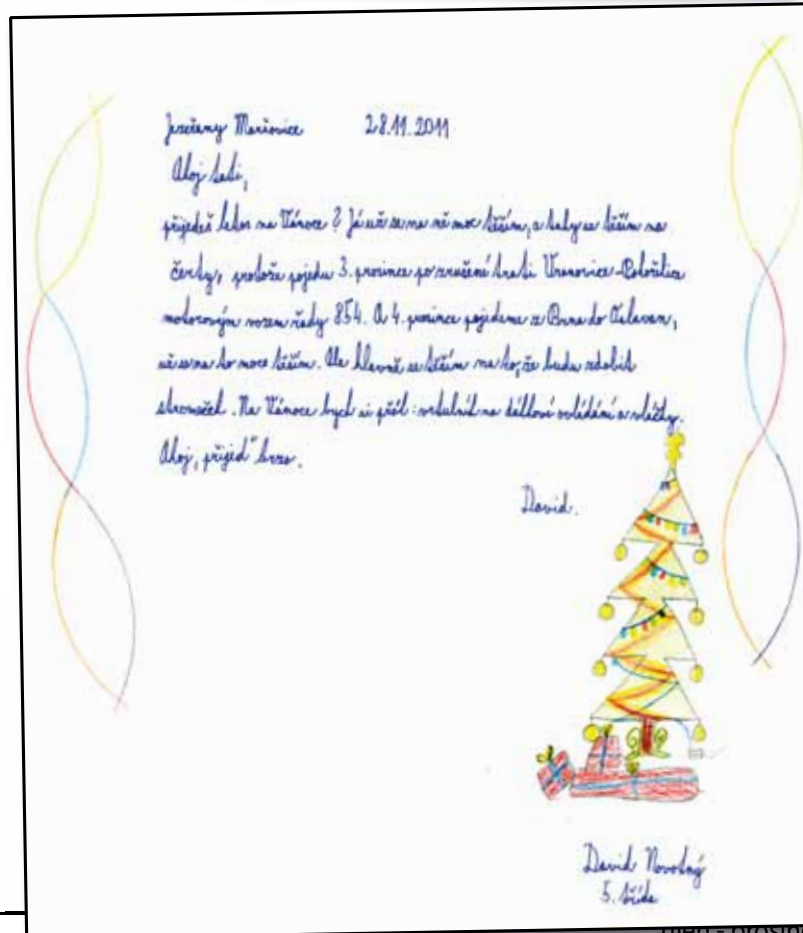 Jezeřany Maršovice 28.11.2011
Ahoj tati,
přijedeš letos na Vánoce? Já už se na ně moc těším, a taky se těším na
čerty, protože pojedu 3. prosince po zrušené trati Vranovice-Pohořelice
motorovým vozem řady 854. A 4. prosince pojedeme z Brna do Oslavan,
už se na to moc těším. Ale hlavně se těším na to, že budu zdobit
stromeček. Na Vánoce bych si přál: vrtulník na dálkové ovládání a vláčky.
Ahoj, přijeď brzo.
David.
David Novotný
5. třída